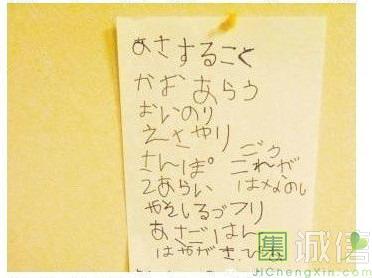 あさすること
かお あらう
おいのり
えさやり
さんぽ ごう これが はなのし
てあらい
やそしるづフリ
あさごはん
はやがきひ
集 诚信
JiChengXin.com